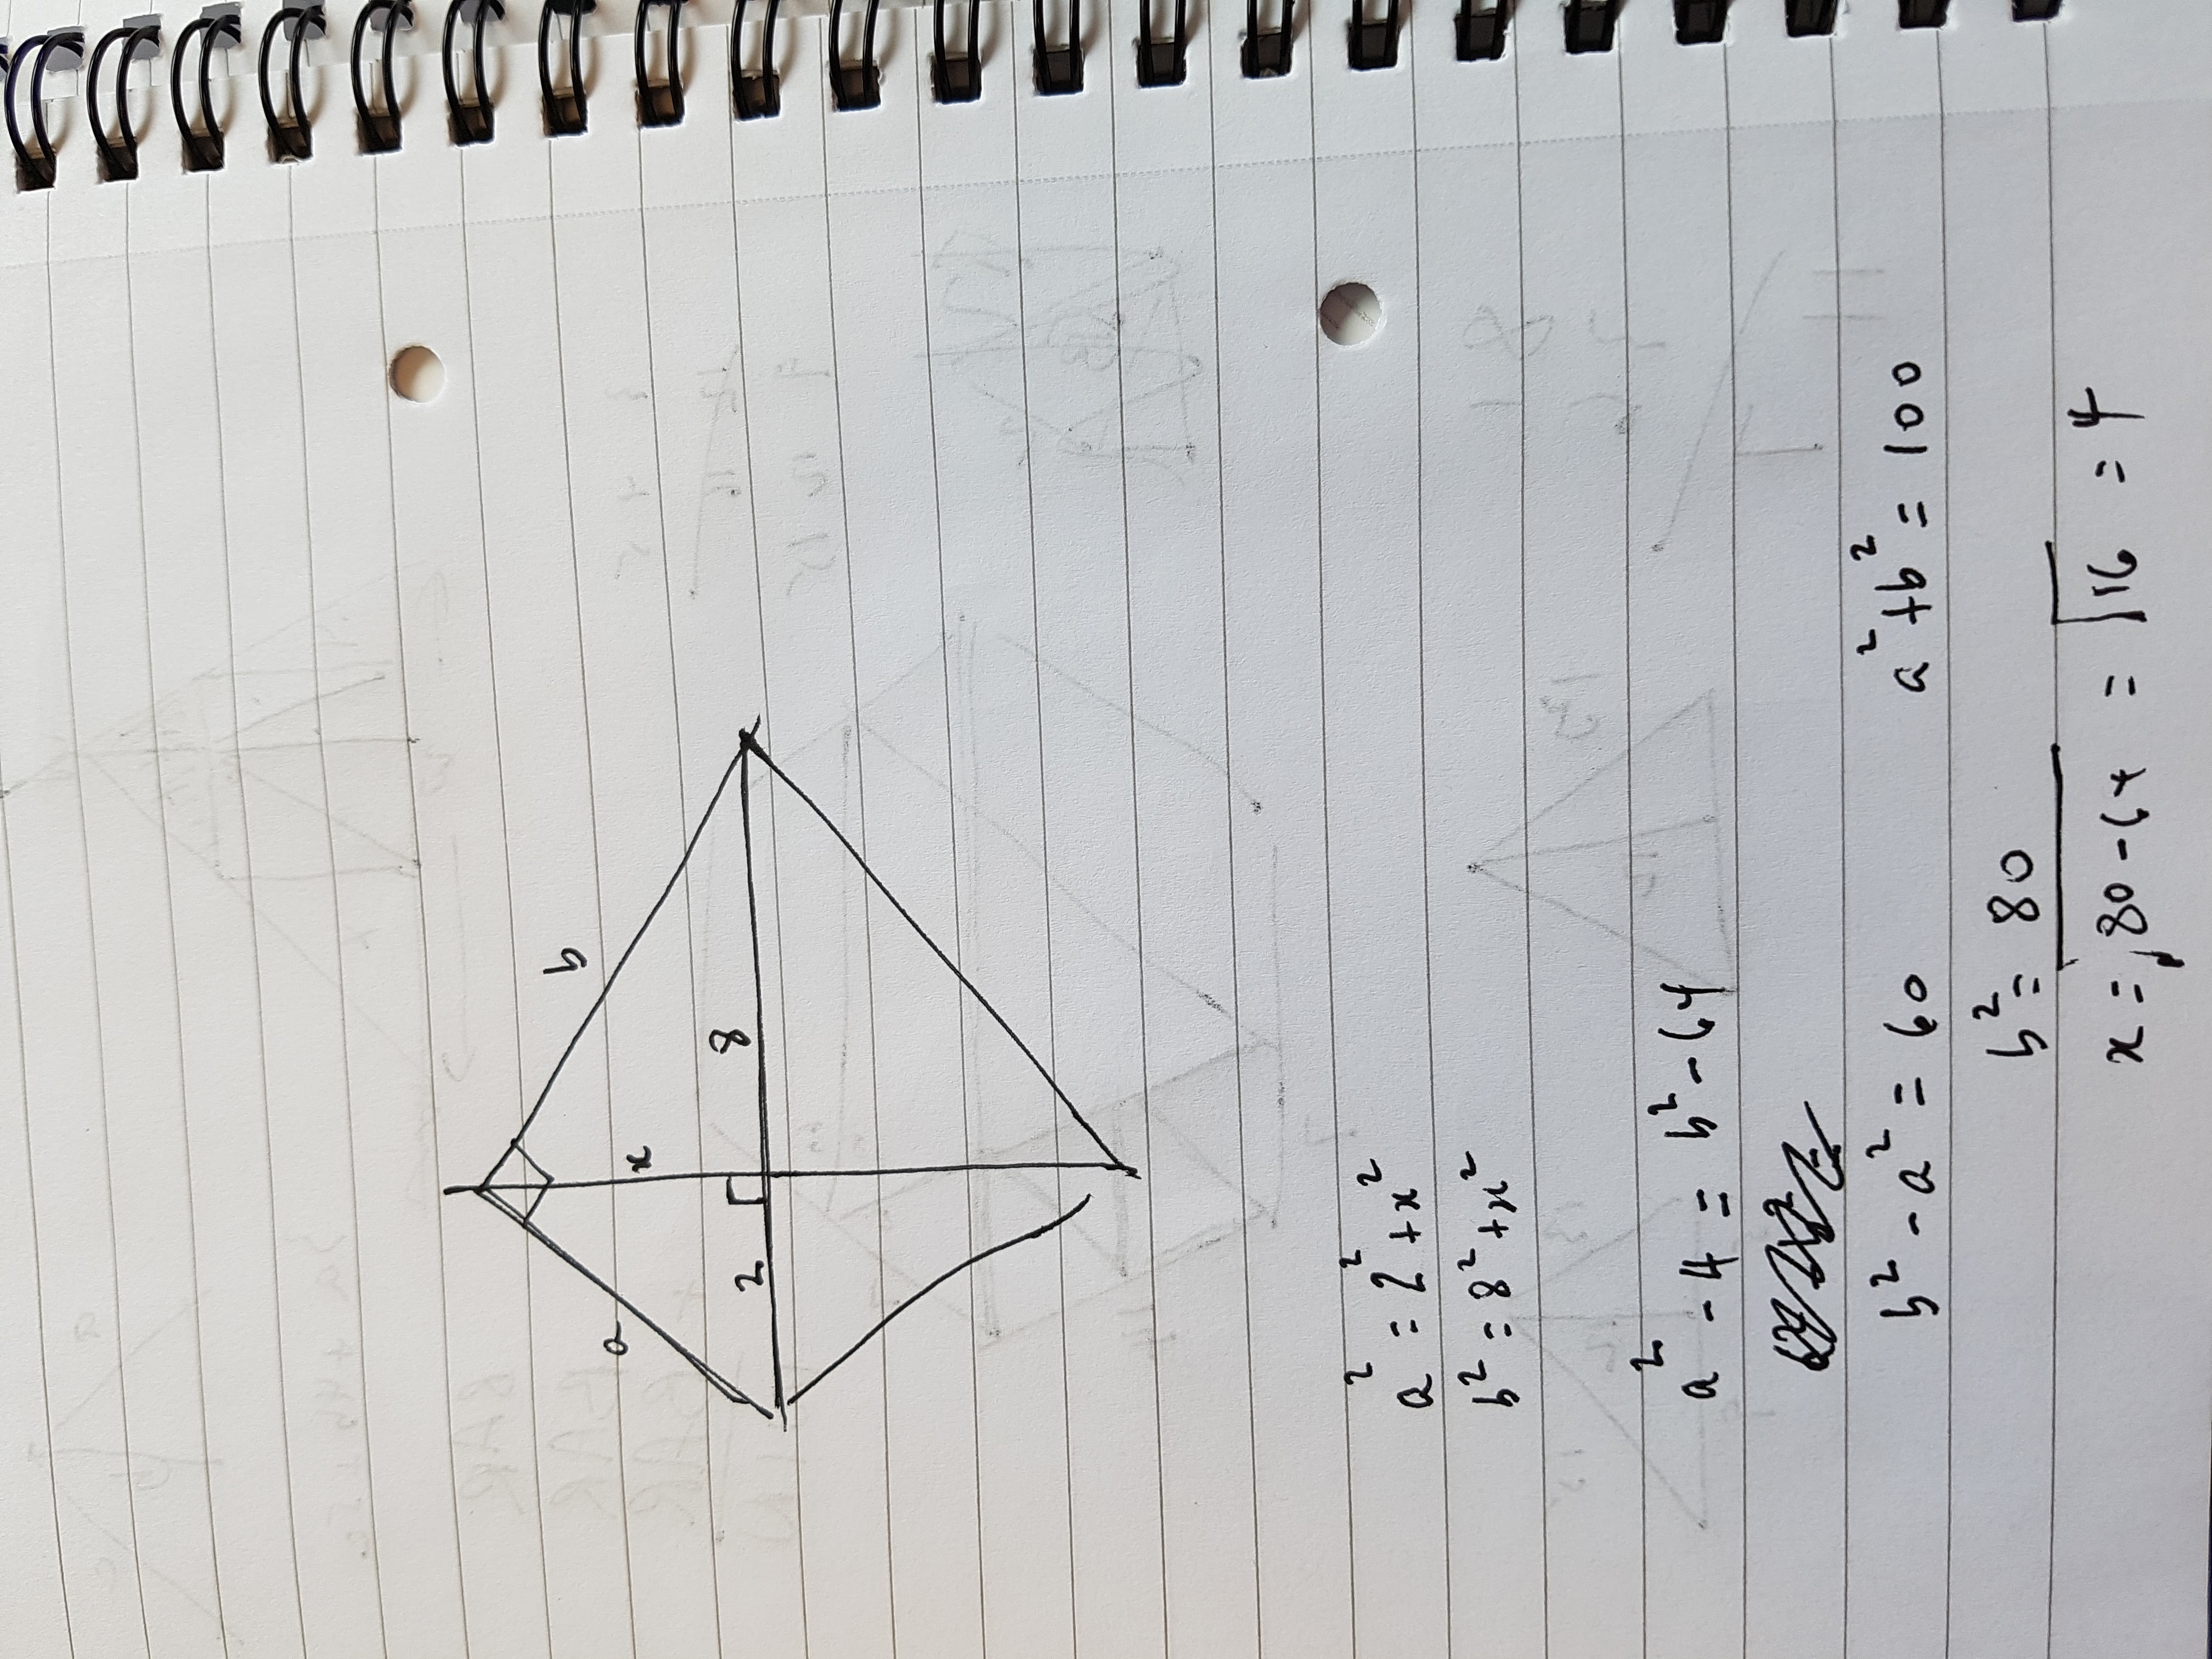 b
a
x
2 8
a² = 2² + x²
b² = 8² + x²
a² - 4 = b² - 64
b² - a² = 60 a² + b² = 100
b² = 80
x = √80-64 = √16 = 4